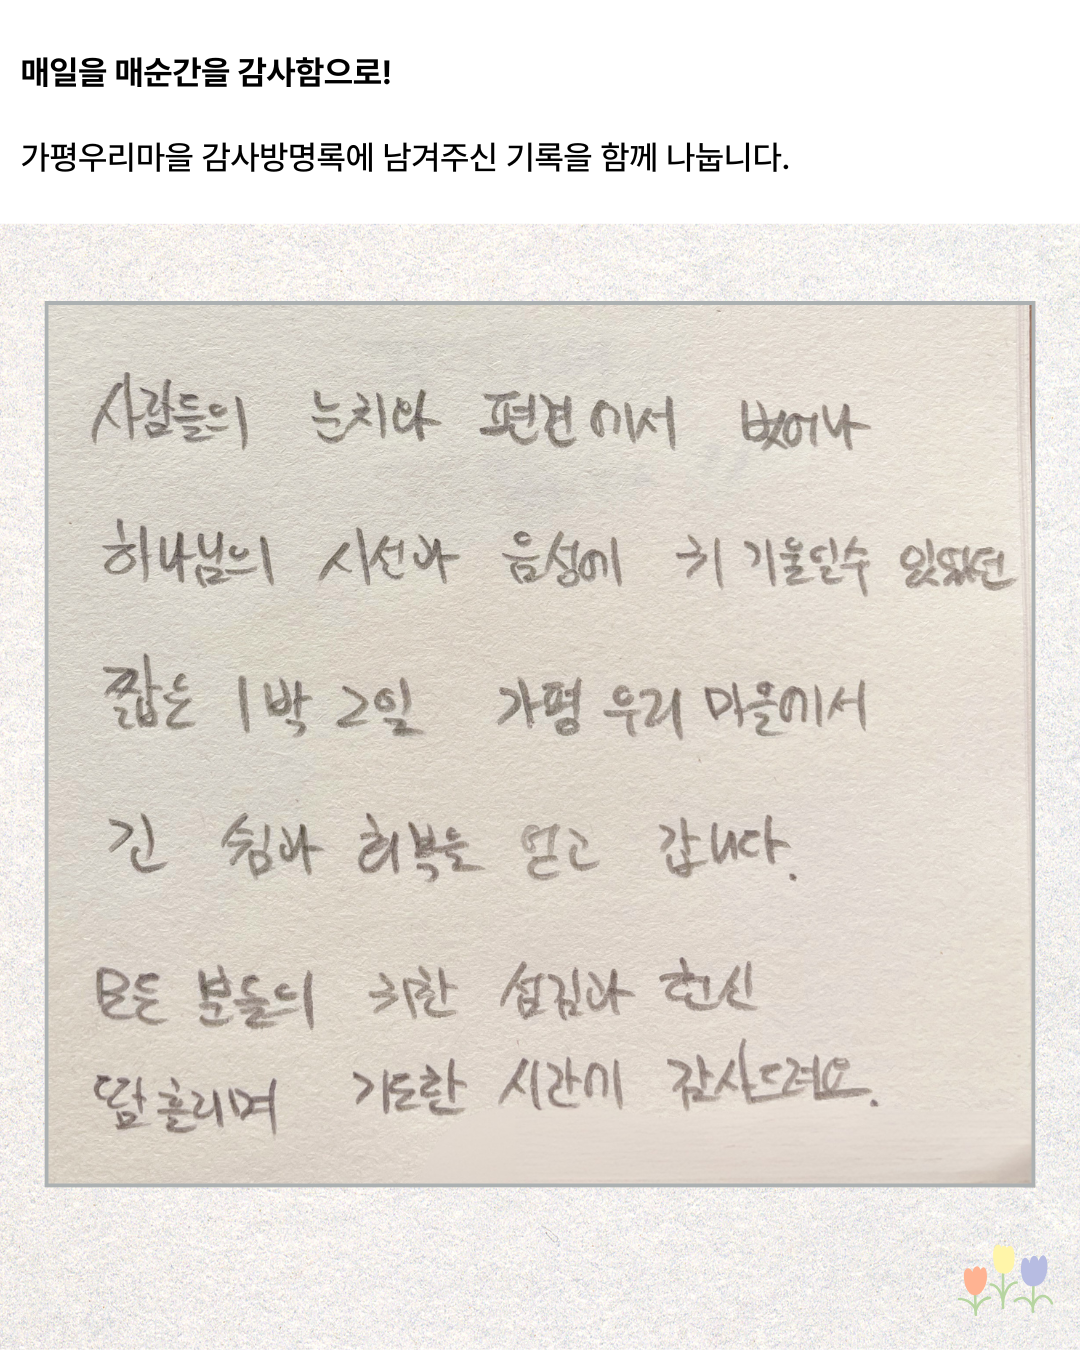 매일을 매순간을 감사함으로!
가평우리마을 감사방명록에 남겨주신 기록을 함께 나눕니다.
사람들의 눈치와 편견에서 벗어나
하나님의 시선과 음성에 귀 기울일수 있었던
짧은 1박 2일 가평 우리 마을에서
긴 쉼과 회복을 얻고 갑니다.
모든 분들의 귀한 섬김과 헌신
땀흘리며 기도한 시간에 감사드려요.